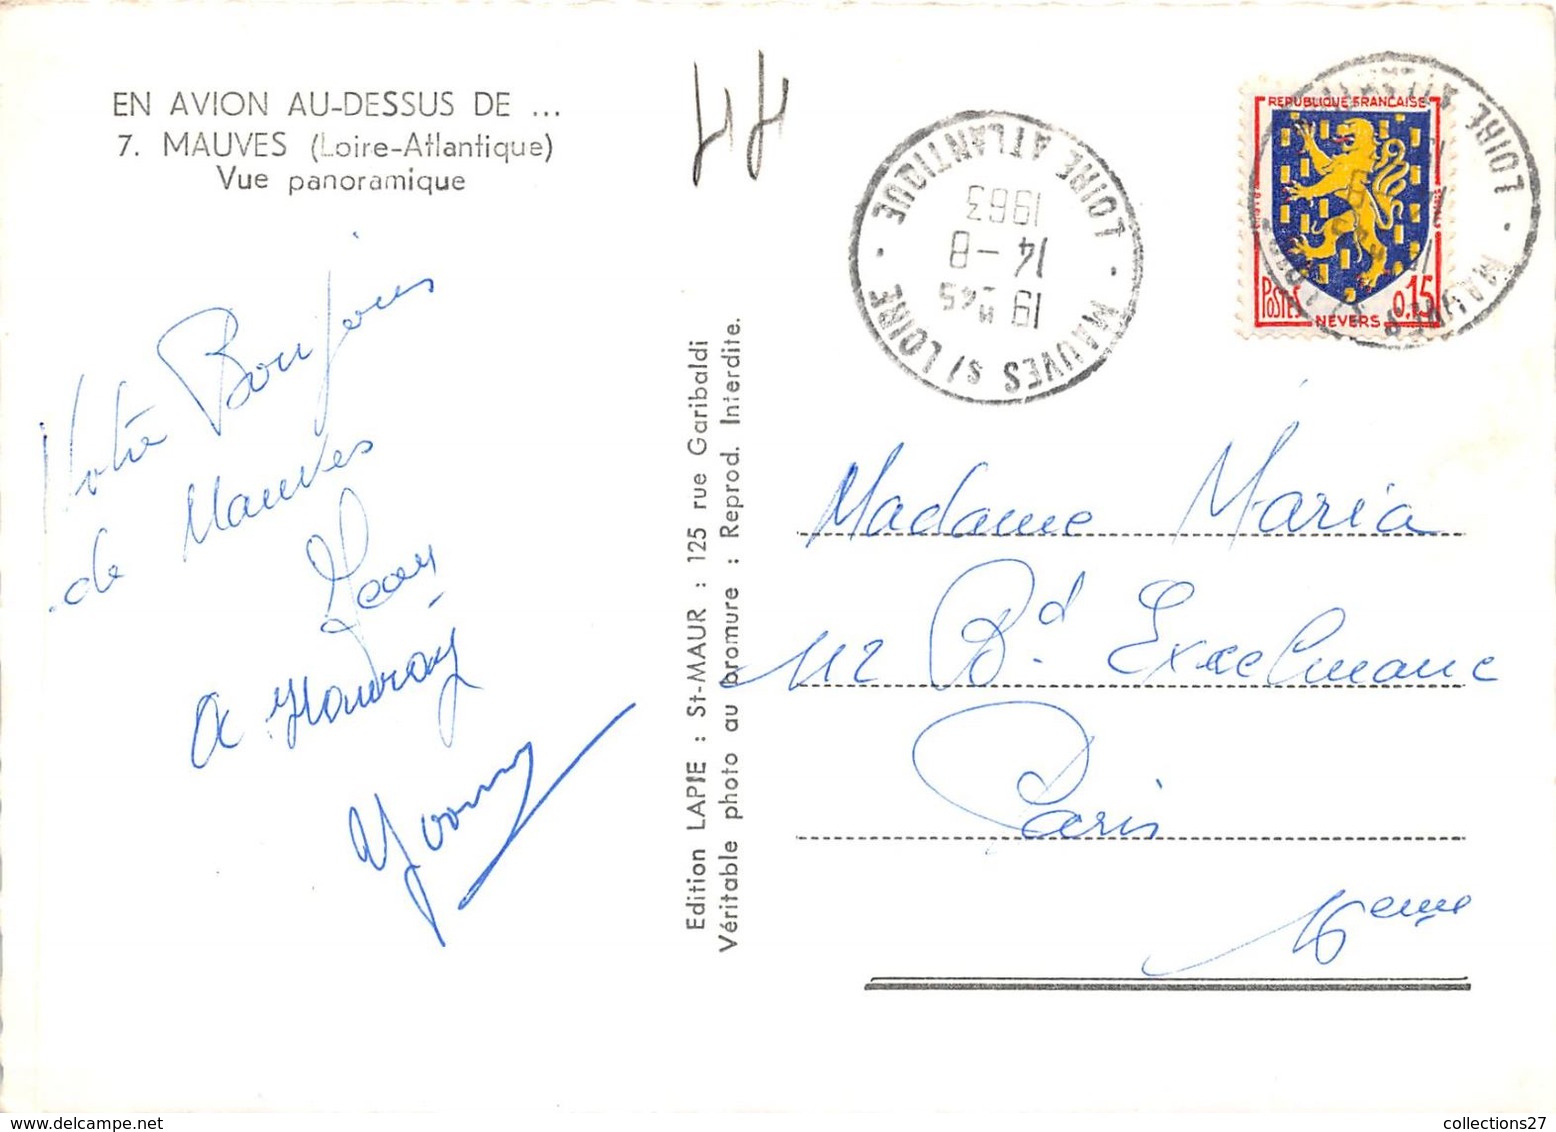 EN AVION AU-DESSUS DE ...
7. MAUVES (Loire-Atlantique)
Vue panoramique
Notre Bonjour
de Mauves
Jean
A
Yvonne
Edition LAPIE : St-MAUR : 125 rue Garibaldi
Véritable photo au bromure : Reprod. Interdite.
MAUVES s/ LOIRE
LOIRE ATLANTIQUE
19 H45
14 -8
1963
REPUBLIQUE FRANCAISE
POSTES
0,15
NEVERS
Madame Maria
112 Bd. Exelmanc
Paris
16eme
collections27